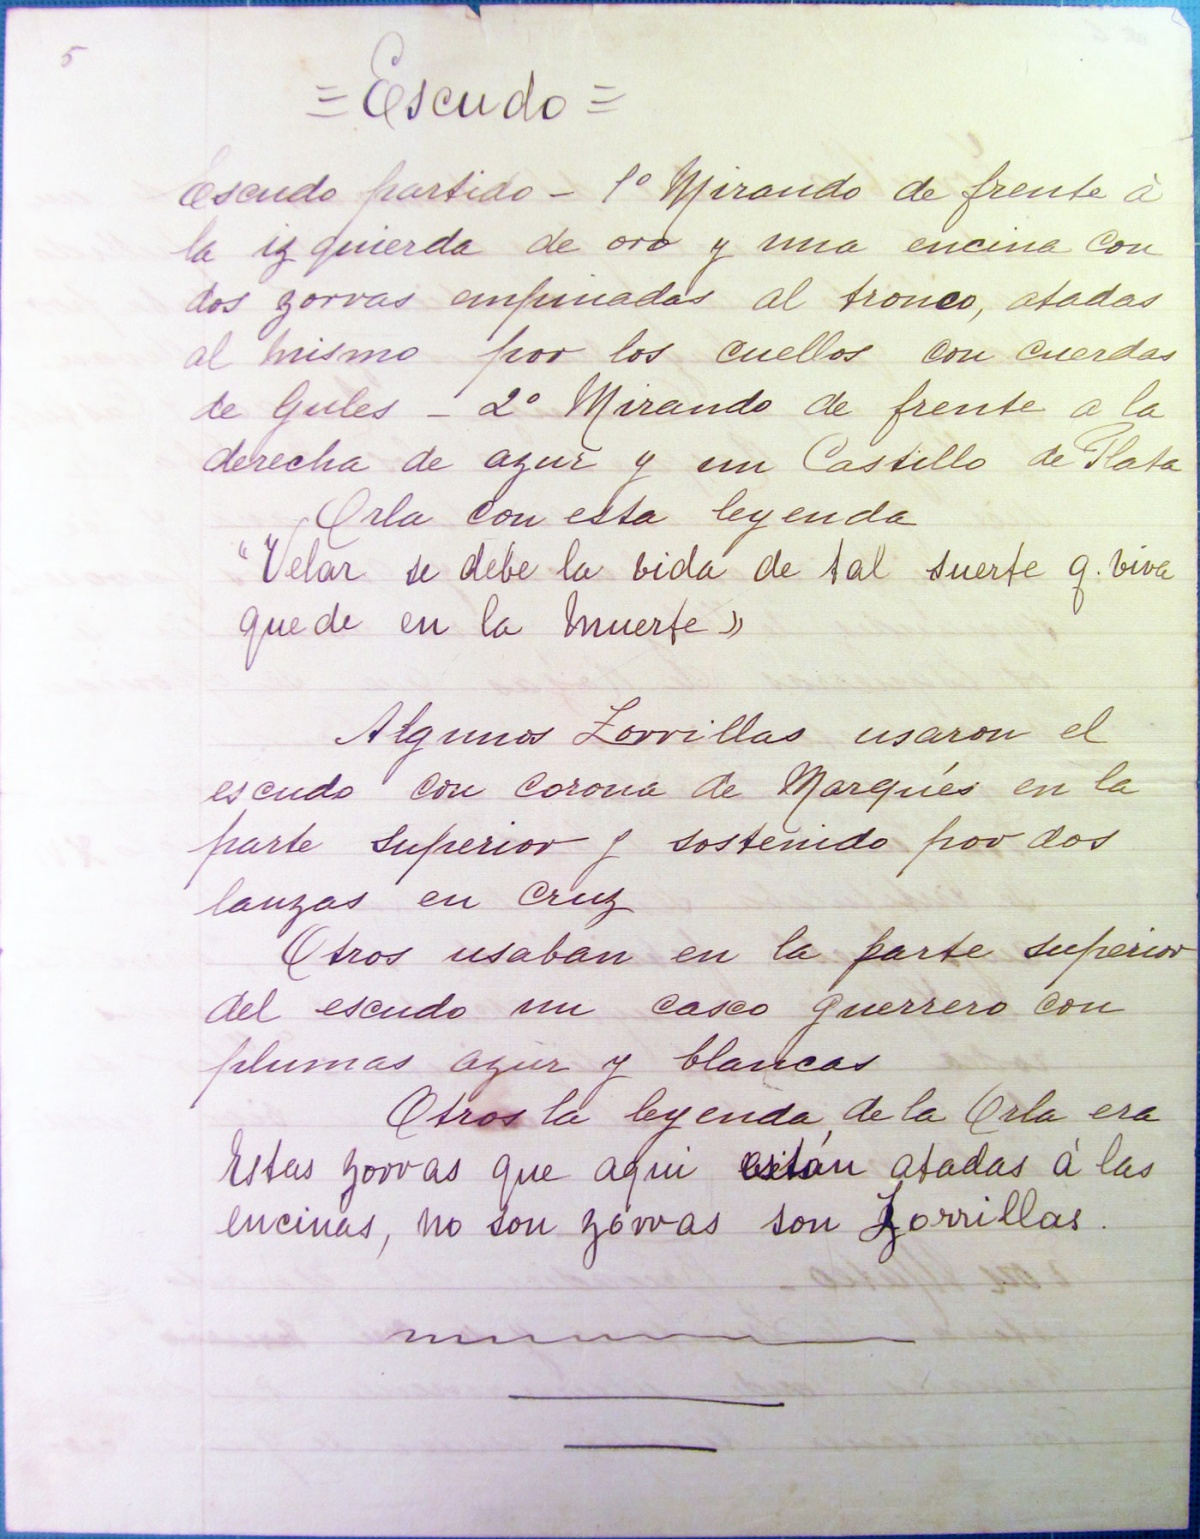 5
= Escudo =
Escudo partido - 1º Mirando de frente à
la izquierda de oro y una encina con
dos zorras empinadas al tronco, atadas
al mismo por los cuellos con cuerdas
de Gules - 2º Mirando de frente a la
derecha de azur y un Castillo de Plata
Orla con esta leyenda
"Velar se debe la vida de tal suerte q. viva
quede en la muerte»
Algunos Zorrillas usaron el
escudo con corona de Marqués en la
parte superior y sostenido por dos
lanzas en cruz
Otros usaban en la parte superior
del escudo un casco guerrero con
plumas azur y blancas
Otros la leyenda de la Orla era
Estas zorras que aqui están atadas á las
encinas, no son zorras son Zorrillas.